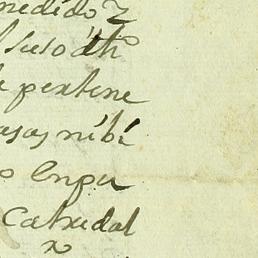 medido Z
suso dho
pertene
asas ni bi
o en pu
Catredal